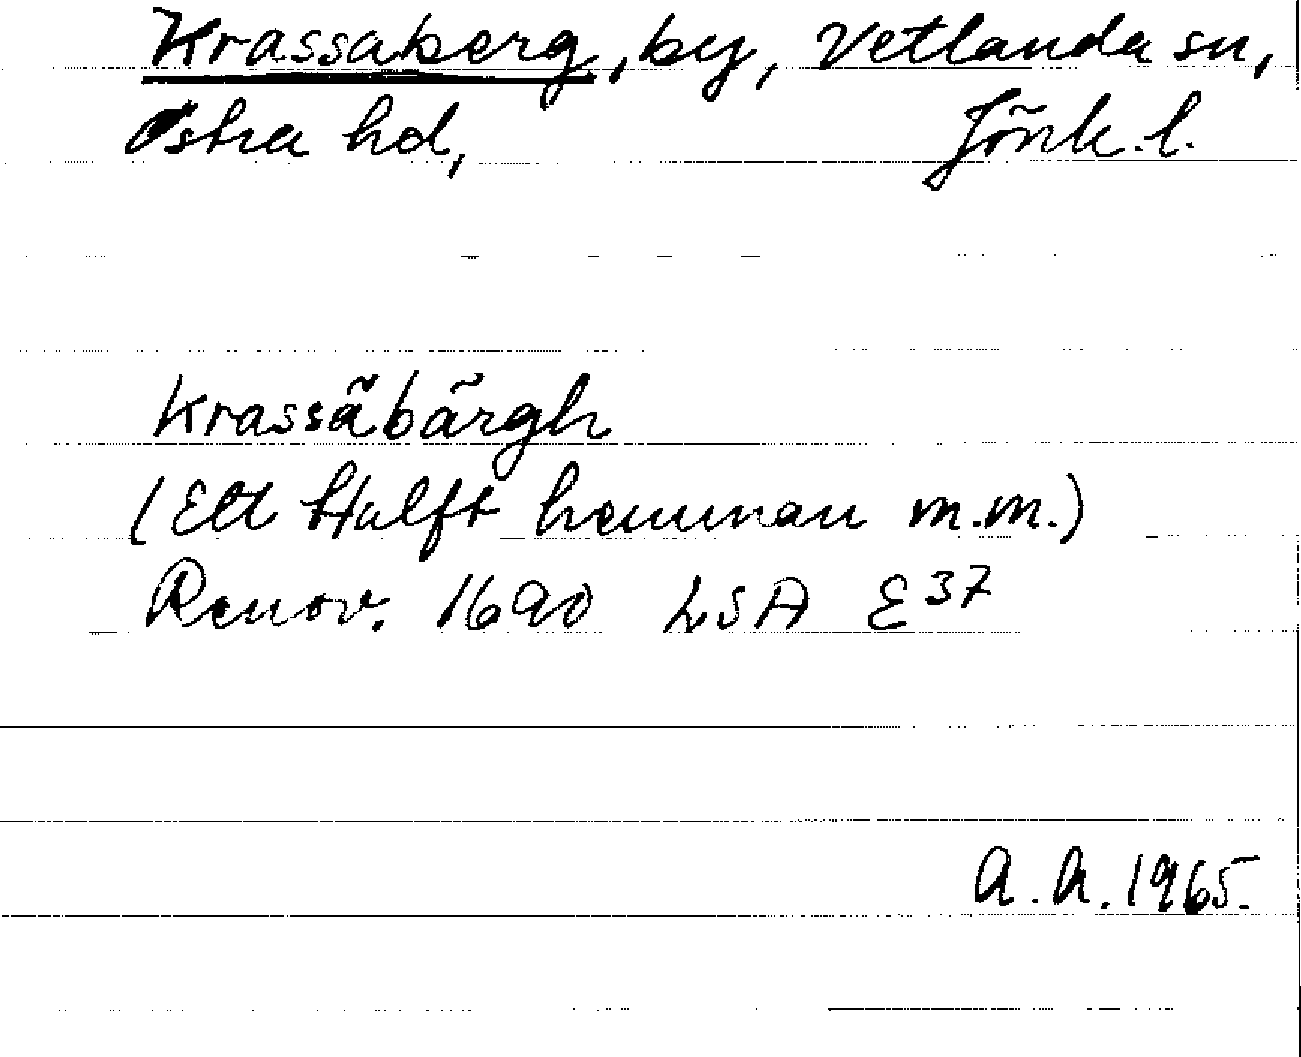 Krassaberg, by, Vetlanda sn,
Östra hd, Jönk. l.
Krassäbärgh
(Ett Halft hemman m.m.)
Renov. 1690 LSA E 37
A. A. 1965.